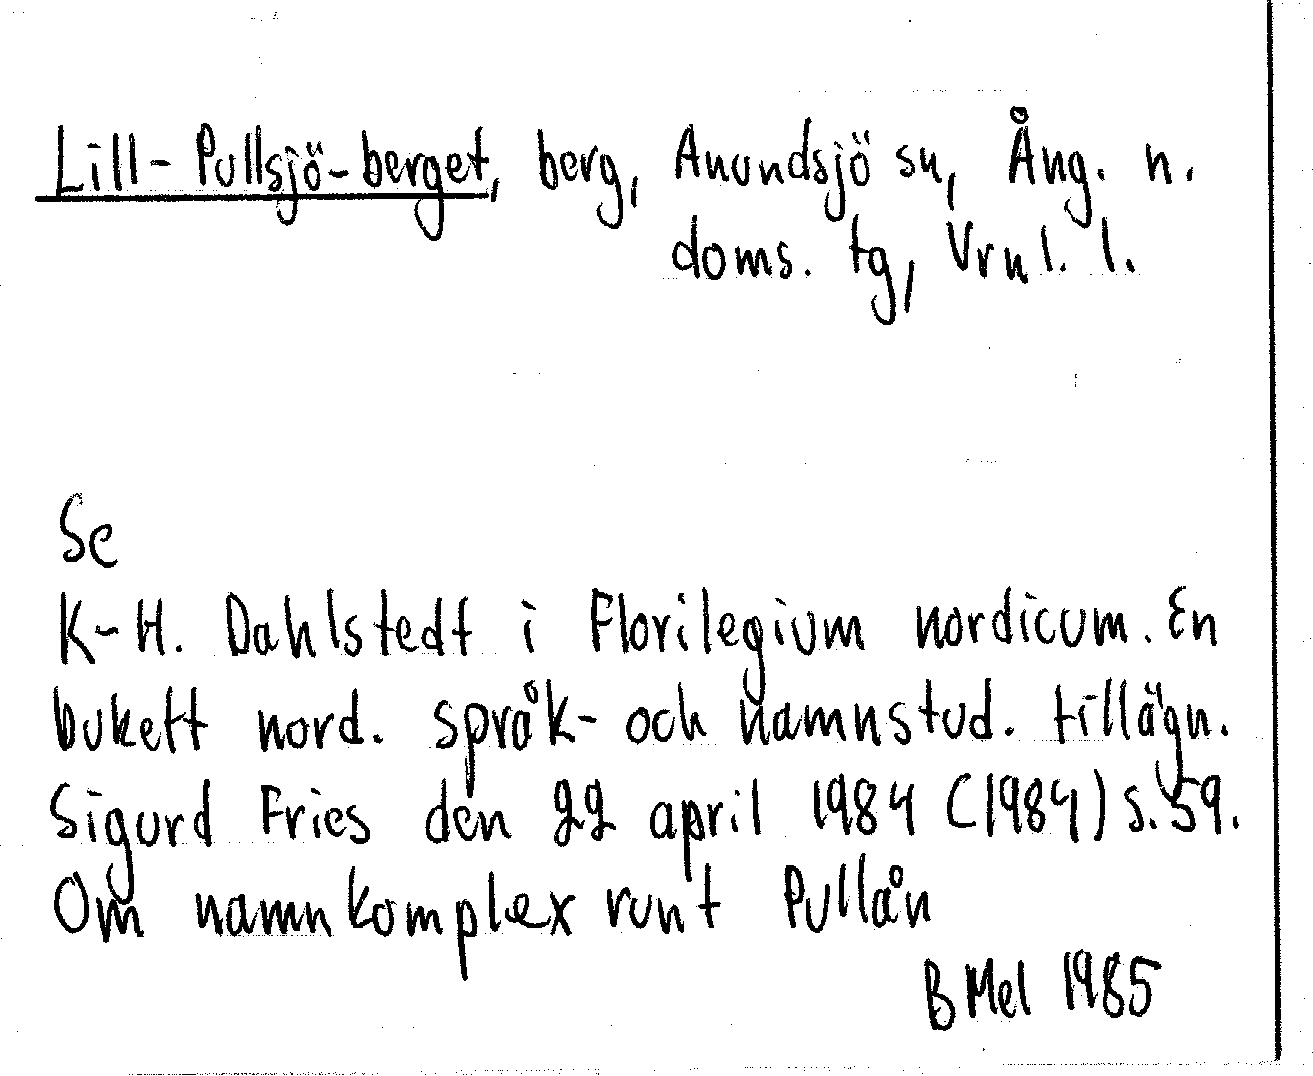 Lill-Pullsjö-berget, berg, Anundsjö sn, Ång. n.
doms. tg, Vrnl. l.
Se
K-H. Dahlstedt i Florilegium nordicum. En
bukett nord. språk- och namnstud. tillägn.
Sigurd Fries den 22 april 1984 (1984) s. 59.
Om namnkomplex runt Pullån
B Mel 1985